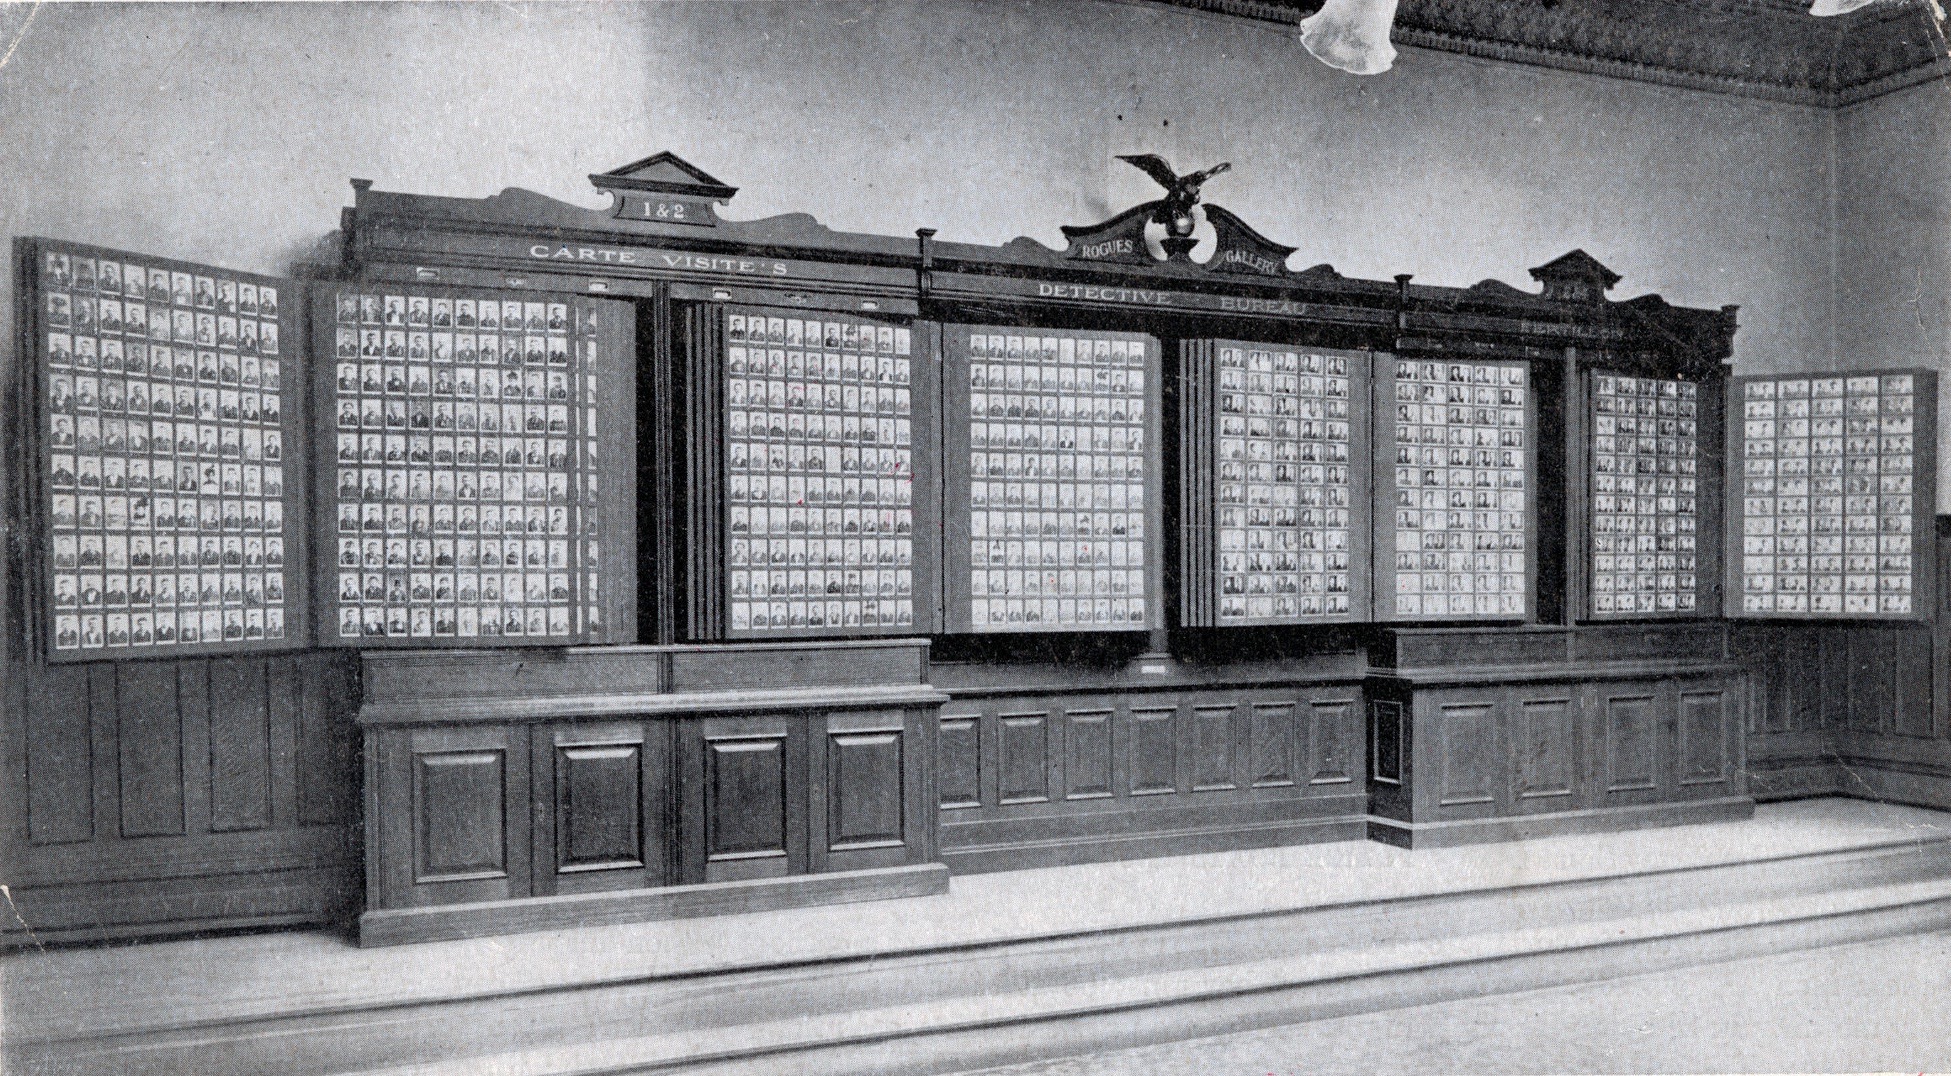 1 & 2
CARTE VISITE'S
ROGUES GALLERY
DETECTIVE BUREAU